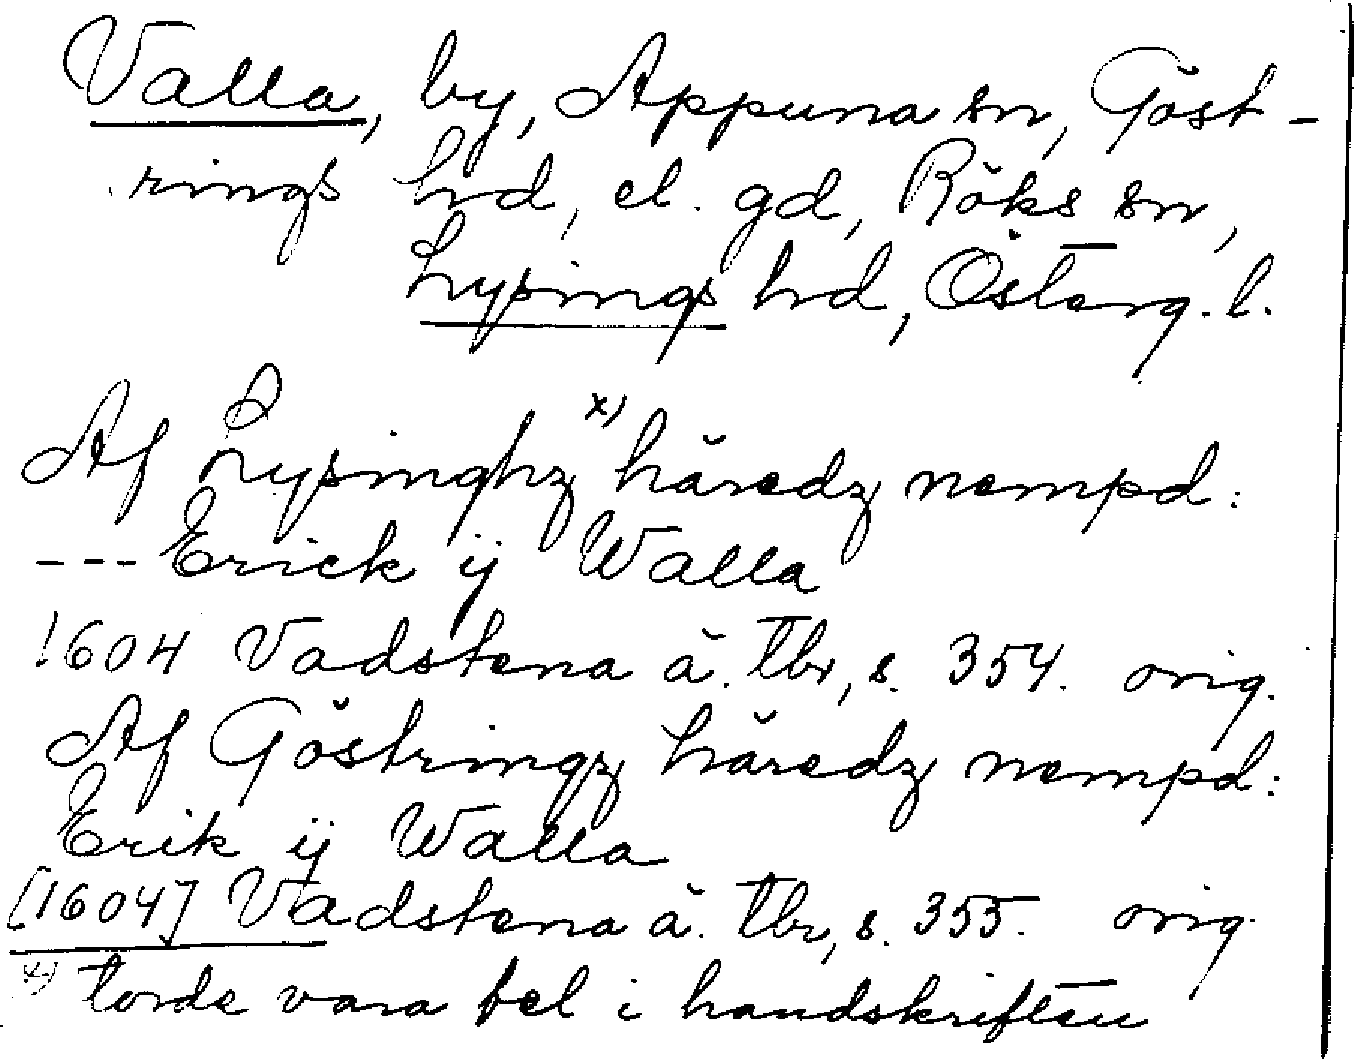 Valla, by, Appuna sn, Göst-
rings hd, el. gd, Röks sn,
Lysings hd, Österg. l.
Af Lysinghz x) häredz nempd:
--- Erick ÿ Walla
1604 Vadstena ä. tbr, s. 354. orig.
Af Göstringz häredz nempd:
Erik ÿ Walla
[1604] Vadstena ä. tbr, s. 355. orig.
x) torde vara fel i handskriften